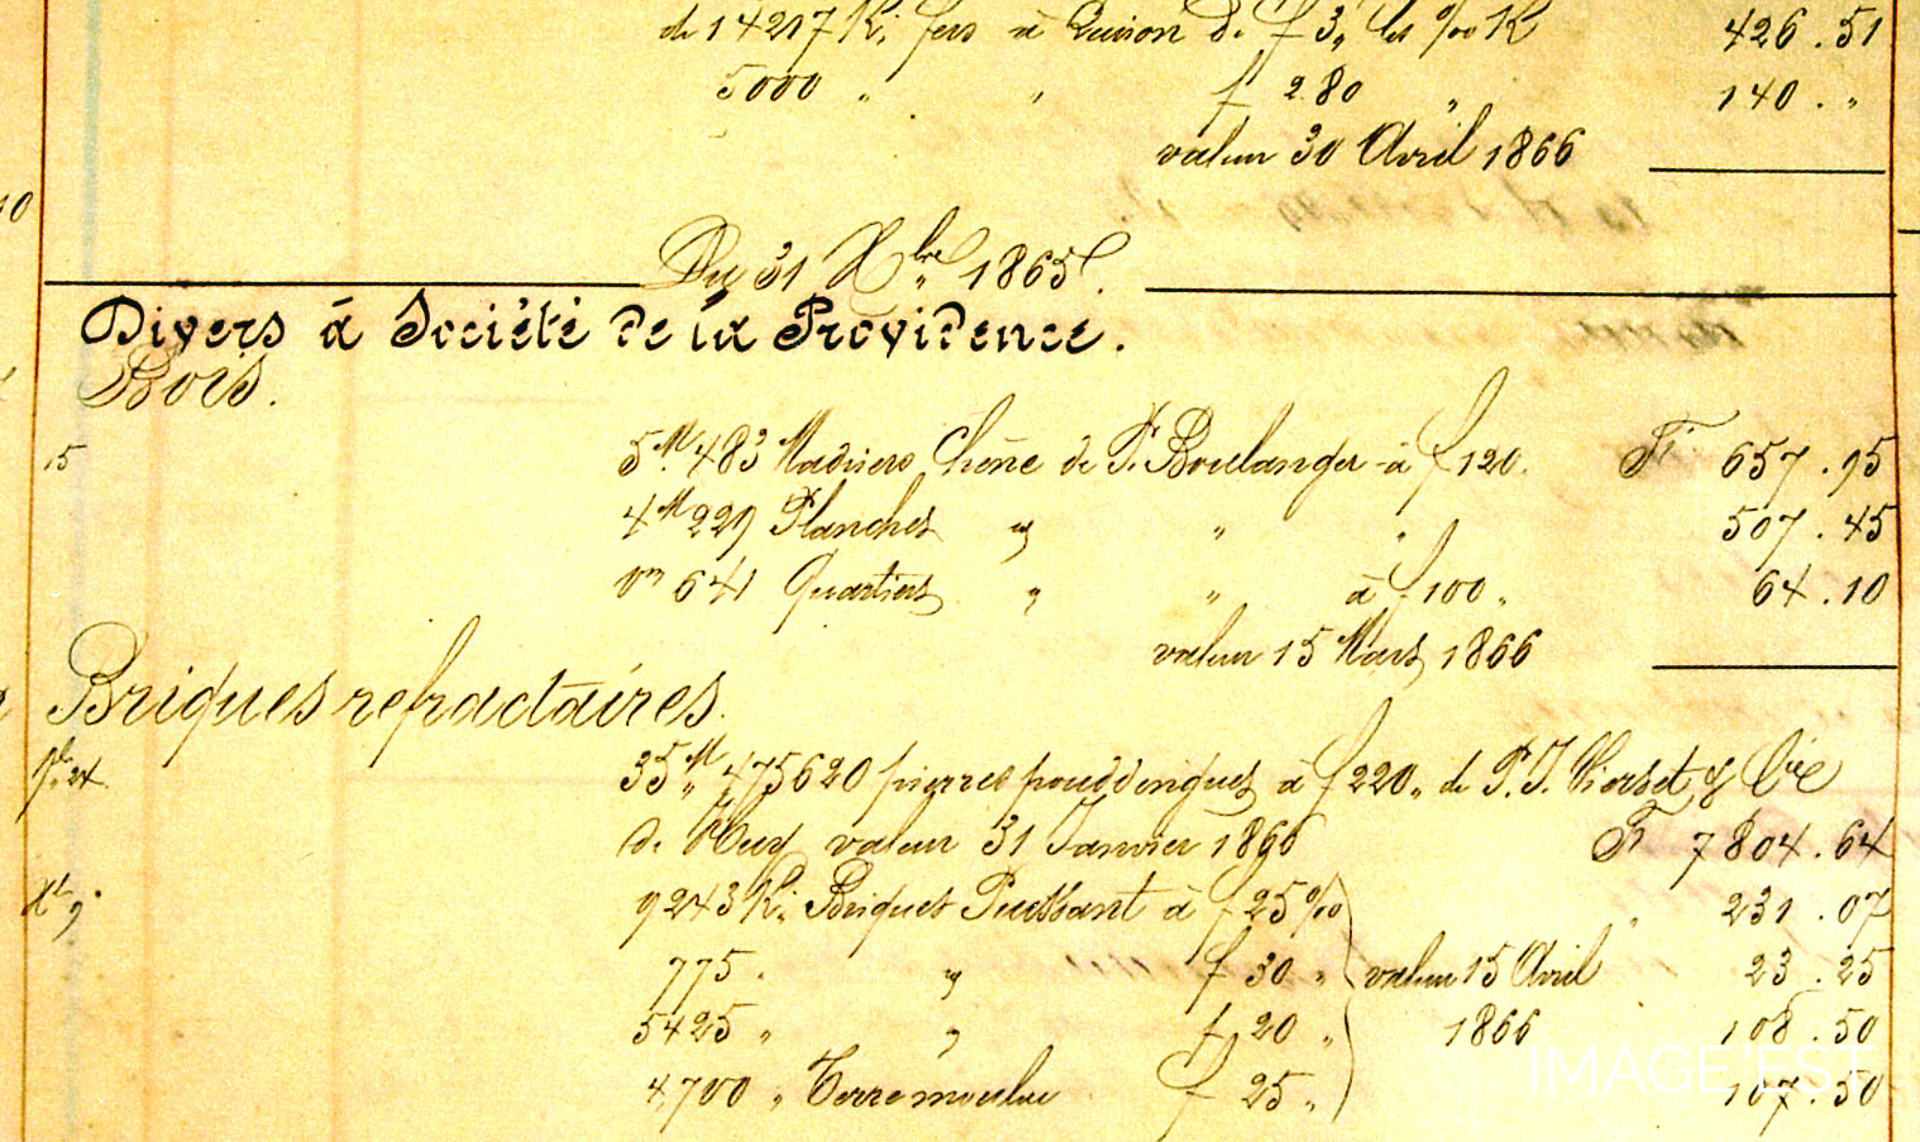 de 14217 K. fers à Quison de f 3 „ les %00 K 426.51
5000 „ „ f 2.80 „ 140.„
valeur 30 Avril 1866
10
Du 31 Xbre 1865
Divers à Société de la Providence.
Bois.
15 5M.483 Madriers Chêne de P. Boulanger à f 120. Fr 657.95
4M 229 Planches „ „ „ 507.45
0m 641 Quartiers „ „ à f 100 „ 64.10
valeur 15 Mars 1866
Briques refractaires.
24 35M„475620 pierres pouddingues à f 220 „ de P. J. Vierset & Cie
de Huy valeur 31 Janvier 1866 Fr 7804.64
9 9243 K. Briques Puissant à f 25 %00 „ 231.07
775 „ „ f 30 „ valeur 15 Avril 23.25
5425 „ „ f 20 „ 1866 108.50
4,700 „ Terre moulue f 25 „ 107.50
IMAGE'EST